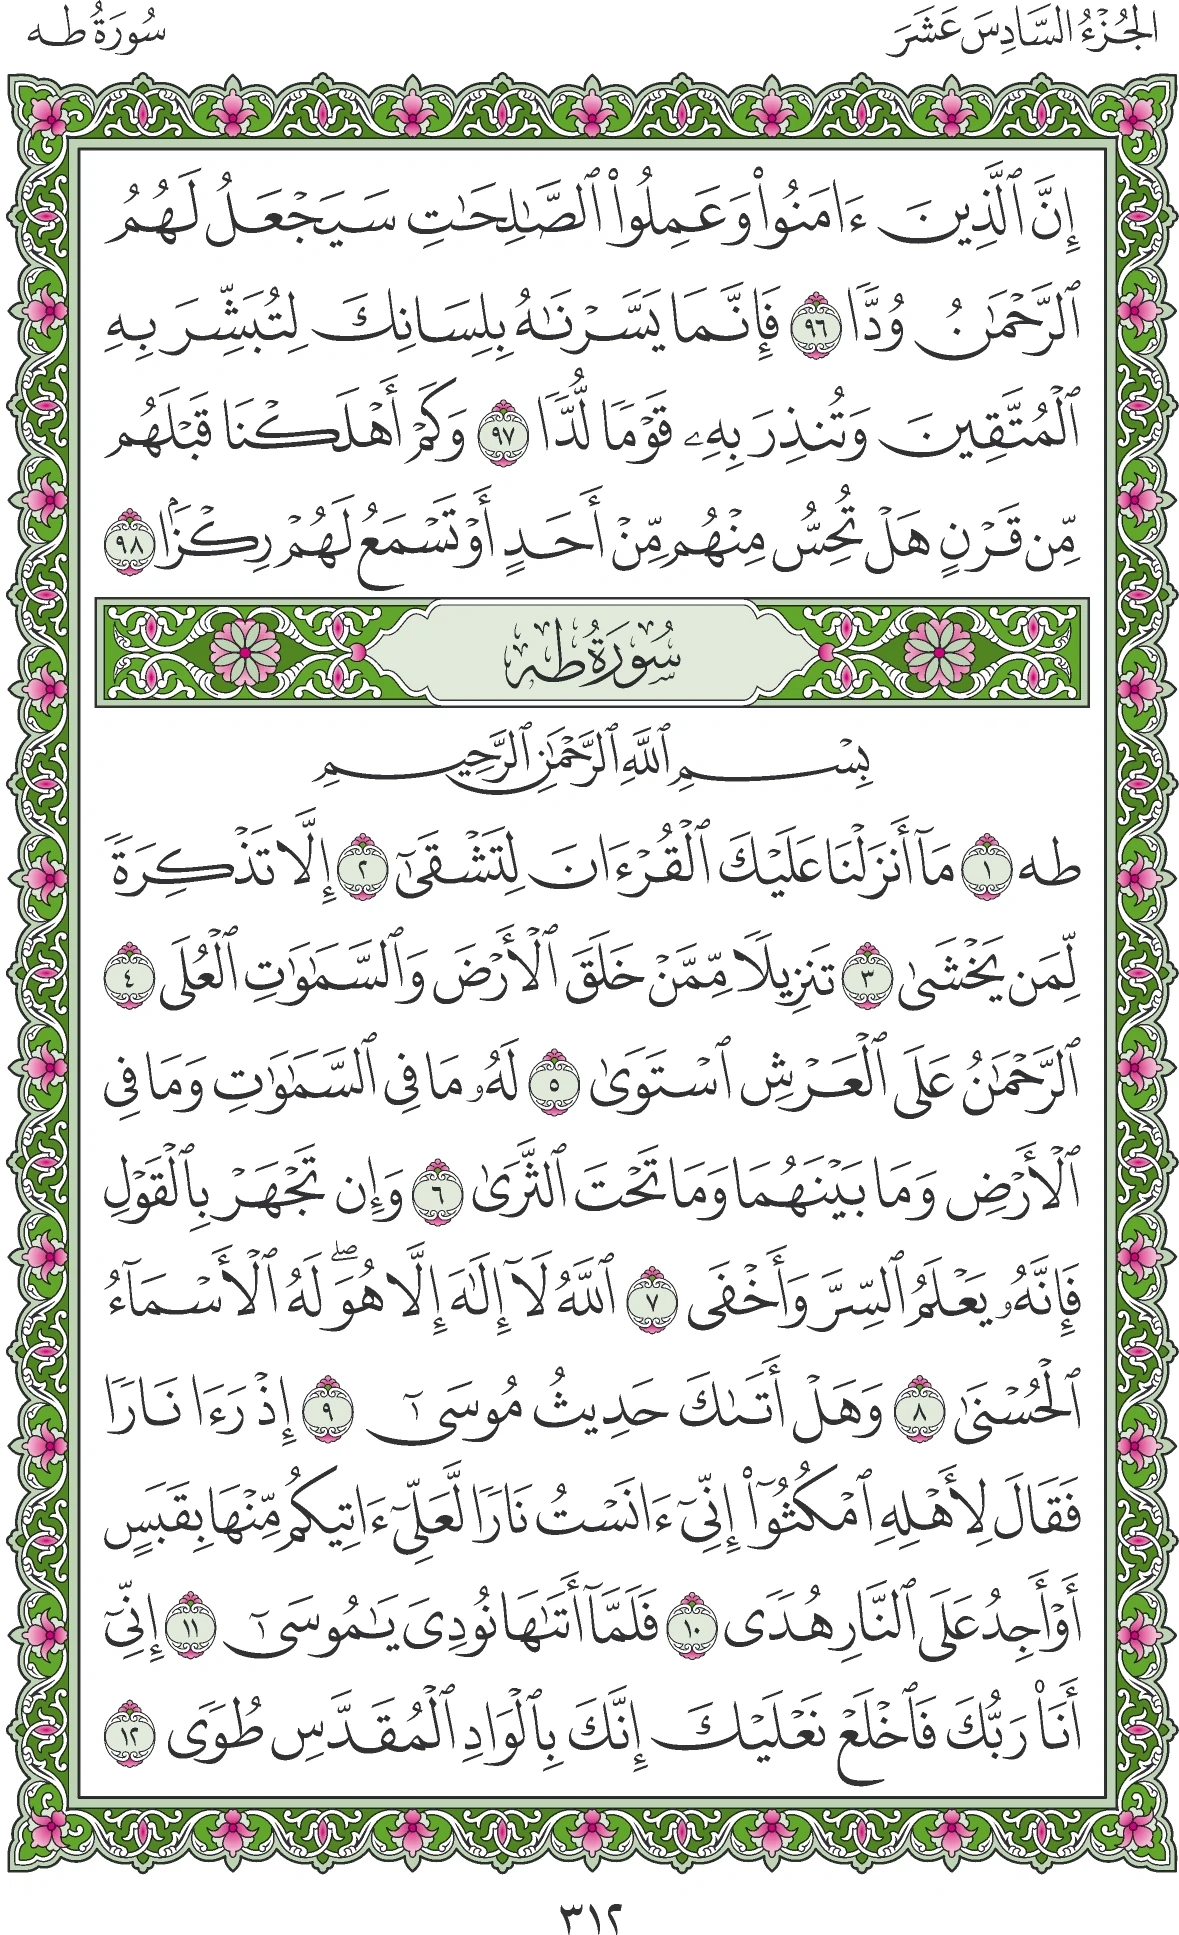 الجُزْءُ السَّادِسَ عَشَرَ
سُورَةُ طه
إِنَّ ٱلَّذِينَ ءَامَنُوا۟ وَعَمِلُوا۟ ٱلصَّٰلِحَٰتِ سَيَجْعَلُ لَهُمُ
ٱلرَّحْمَٰنُ وُدًّا ٩٦ فَإِنَّمَا يَسَّرْنَٰهُ بِلِسَانِكَ لِتُبَشِّرَ بِهِ
ٱلْمُتَّقِينَ وَتُنذِرَ بِهِۦ قَوْمًا لُّدًّا ٩٧ وَكَمْ أَهْلَكْنَا قَبْلَهُم
مِّن قَرْنٍ هَلْ تُحِسُّ مِنْهُم مِّنْ أَحَدٍ أَوْ تَسْمَعُ لَهُمْ رِكْزًۢا ٩٨
سُورَةُ طه
بِسْمِ ٱللَّهِ ٱلرَّحْمَٰنِ ٱلرَّحِيمِ
طه ١ مَآ أَنزَلْنَا عَلَيْكَ ٱلْقُرْءَانَ لِتَشْقَىٰٓ ٢ إِلَّا تَذْكِرَةً
لِّمَن يَخْشَىٰ ٣ تَنزِيلًا مِّمَّنْ خَلَقَ ٱلْأَرْضَ وَٱلسَّمَٰوَٰتِ ٱلْعُلَى ٤
ٱلرَّحْمَٰنُ عَلَى ٱلْعَرْشِ ٱسْتَوَىٰ ٥ لَهُۥ مَا فِى ٱلسَّمَٰوَٰتِ وَمَا فِى
ٱلْأَرْضِ وَمَا بَيْنَهُمَا وَمَا تَحْتَ ٱلثَّرَىٰ ٦ وَإِن تَجْهَرْ بِٱلْقَوْلِ
فَإِنَّهُۥ يَعْلَمُ ٱلسِّرَّ وَأَخْفَى ٧ ٱللَّهُ لَآ إِلَٰهَ إِلَّا هُوَ ۖ لَهُ ٱلْأَسْمَآءُ
ٱلْحُسْنَىٰ ٨ وَهَلْ أَتَىٰكَ حَدِيثُ مُوسَىٰٓ ٩ إِذْ رَءَا نَارًا
فَقَالَ لِأَهْلِهِ ٱمْكُثُوٓا۟ إِنِّىٓ ءَانَسْتُ نَارًا لَّعَلِّىٓ ءَاتِيكُم مِّنْهَا بِقَبَسٍ
أَوْ أَجِدُ عَلَى ٱلنَّارِ هُدًى ١٠ فَلَمَّآ أَتَىٰهَا نُودِىَ يَٰمُوسَىٰٓ ١١ إِنِّىٓ
أَنَا۠ رَبُّكَ فَٱخْلَعْ نَعْلَيْكَ إِنَّكَ بِٱلْوَادِ ٱلْمُقَدَّسِ طُوًى ١٢
٣١٢